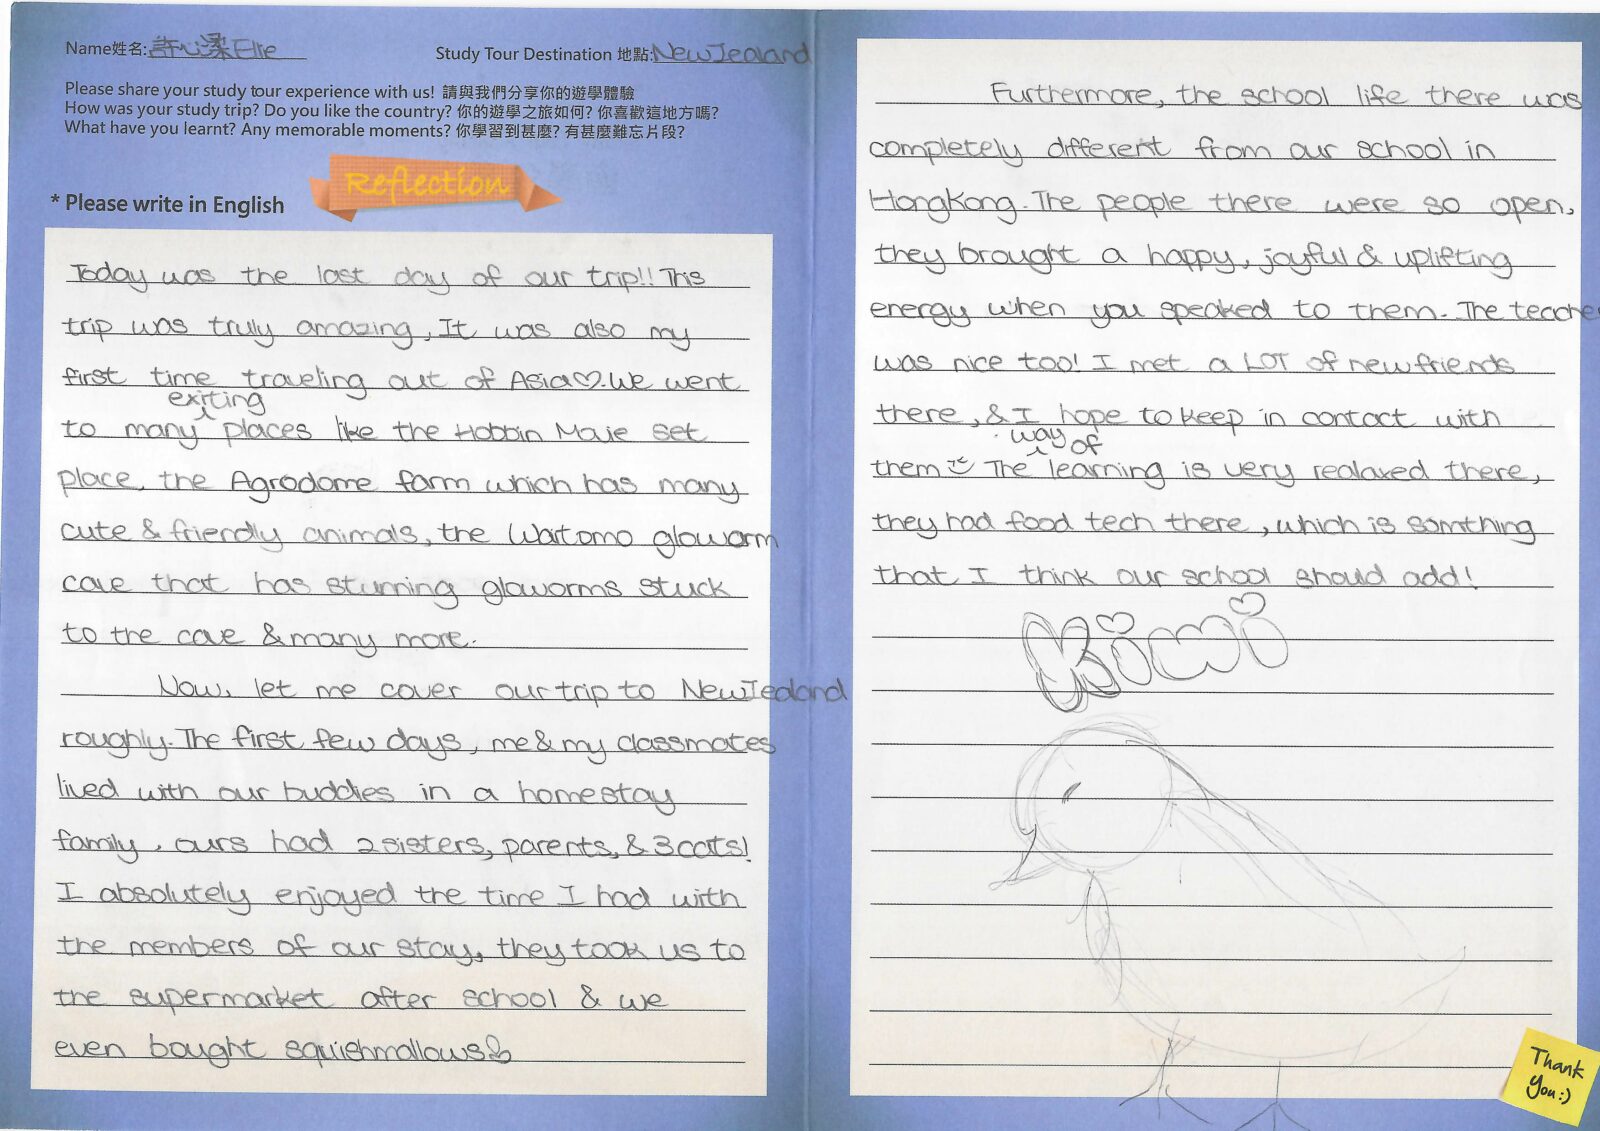 Name姓名: 許心濡 Elie
Study Tour Destination 地點: New Zealand
Please share your study tour experience with us! 請與我們分享你的遊學體驗
How was your study trip? Do you like the country? 你的遊學之旅如何? 你喜歡這地方嗎?
What have you learnt? Any memorable moments? 你學習到甚麼? 有甚麼難忘片段?
Reflection
* Please write in English
Today was the last day of our trip!! This
trip was truly amazing, It was also my
first time traveling out of Asia♡. We went
to many exiting places like the Hobbin Movie set
place, the Agrodome farm which has many
cute & friendly animals, the Waitomo gloworm
cave that has stunning gloworms stuck
to the cave & many more.
Now, let me cover our trip to New Zealand
roughly. The first few days, me & my classmates
lived with our buddies in a homestay
family, ours had 2 sisters, parents, & 3 cats!
I absolutely enjoyed the time I had with
the members of our stay, they took us to
the supermarket after school & we
even bought squishmallows♡
Furthermore, the school life there was
completely different from our school in
HongKong. The people there were so open,
they brought a happy, joyful & uplifting
energy when you speaked to them. The teacher
was nice too! I met a LOT of new friends
there, & I hope to keep in contact with
them The way of learning is very realaxed there,
they had food tech there, which is somthing
that I think our school should add!
Kiwi
Thank
you:)